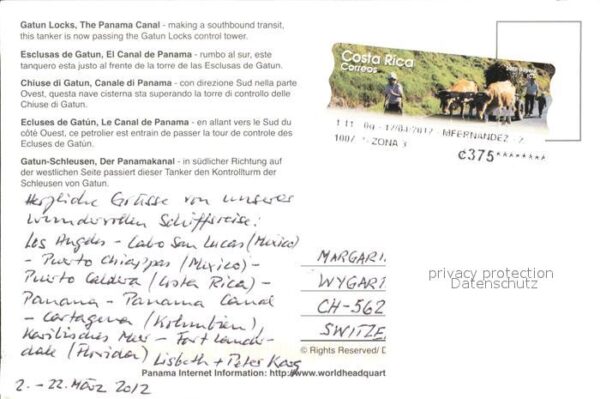 Gatun Locks, The Panama Canal - making a southbound transit,
this tanker is now passing the Gatun Locks control tower.
Esclusas de Gatun, El Canal de Panama - rumbo al sur, este
tanquero esta justo al frente de la torre de las Esclusas de Gatun.
Chiuse di Gatun, Canale di Panama - con direzione Sud nella parte
Ovest, questa nave cisterna sta superando la torre di controllo delle
Chiuse di Gatun.
Ecluses de Gatún, Le Canal de Panama - en allant vers le Sud du
côté Ouest, ce petrolier est entrain de passer la tour de controle des
Ecluses de Gatún.
Gatun-Schleusen, Der Panamakanal - in südlicher Richtung auf
der westlichen Seite passiert dieser Tanker den Kontrollturm der
Schleusen von Gatun.
Herzliche Grüsse von unserer
wundervollen Schiffsreise:
Los Angeles - Cabo San Lucas (Mexico)
- Puerto Chiappas (Mexico) -
Puerto Caldera (Costa Rica) -
Panama - Panama Canal
- Cartagena (Kolumbien)
Karibisches Meer - Fort Lauder-
dale (Florida) Lisbeth + Peter
2. - 22. März 2012
Costa Rica
Correos
17/04/2012 - MFERNANDEZ - 2
1007 - ZONA 3
¢375********
MARGARI
WYGART
CH-562
SWITZE
privacy protection
Datenschutz
© Rights Reserved/ D
Panama Internet Information: http://www.worldheadquart